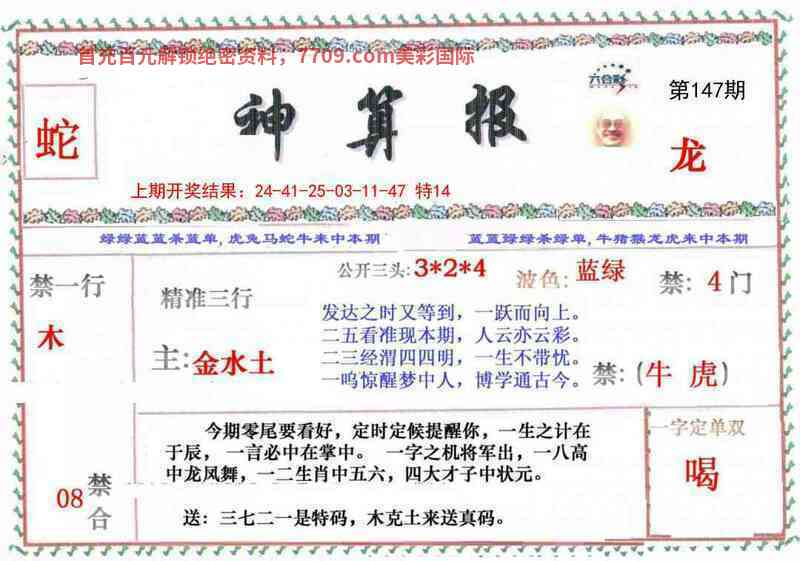 首充百元解锁绝密资料，7709.com美彩国际
六合彩
第147期
神算报
蛇
龙
上期开奖结果：24-41-25-03-11-47 特14
绿绿蓝蓝杀蓝单,虎兔马蛇牛来中本期
蓝蓝绿绿杀绿单,牛猪猴龙虎来中本期
禁一行
木
精准三行
主:金水土
公开三头:3*2*4
波色:蓝绿
禁:4门
发达之时又等到，一跃而向上。
二五看准现本期，人云亦云彩。
二三经渭四四明，一生不带忧。
一鸣惊醒梦中人，博学通古今。
禁:(牛 虎)
08禁合
今期零尾要看好，定时定候提醒你，一生之计在
于辰，一言必中在掌中。 一字之机将军出，一八高
中龙凤舞，一二生肖中五六，四大才子中状元。
送：三七二一是特码，木克土来送真码。
一字定单双
喝